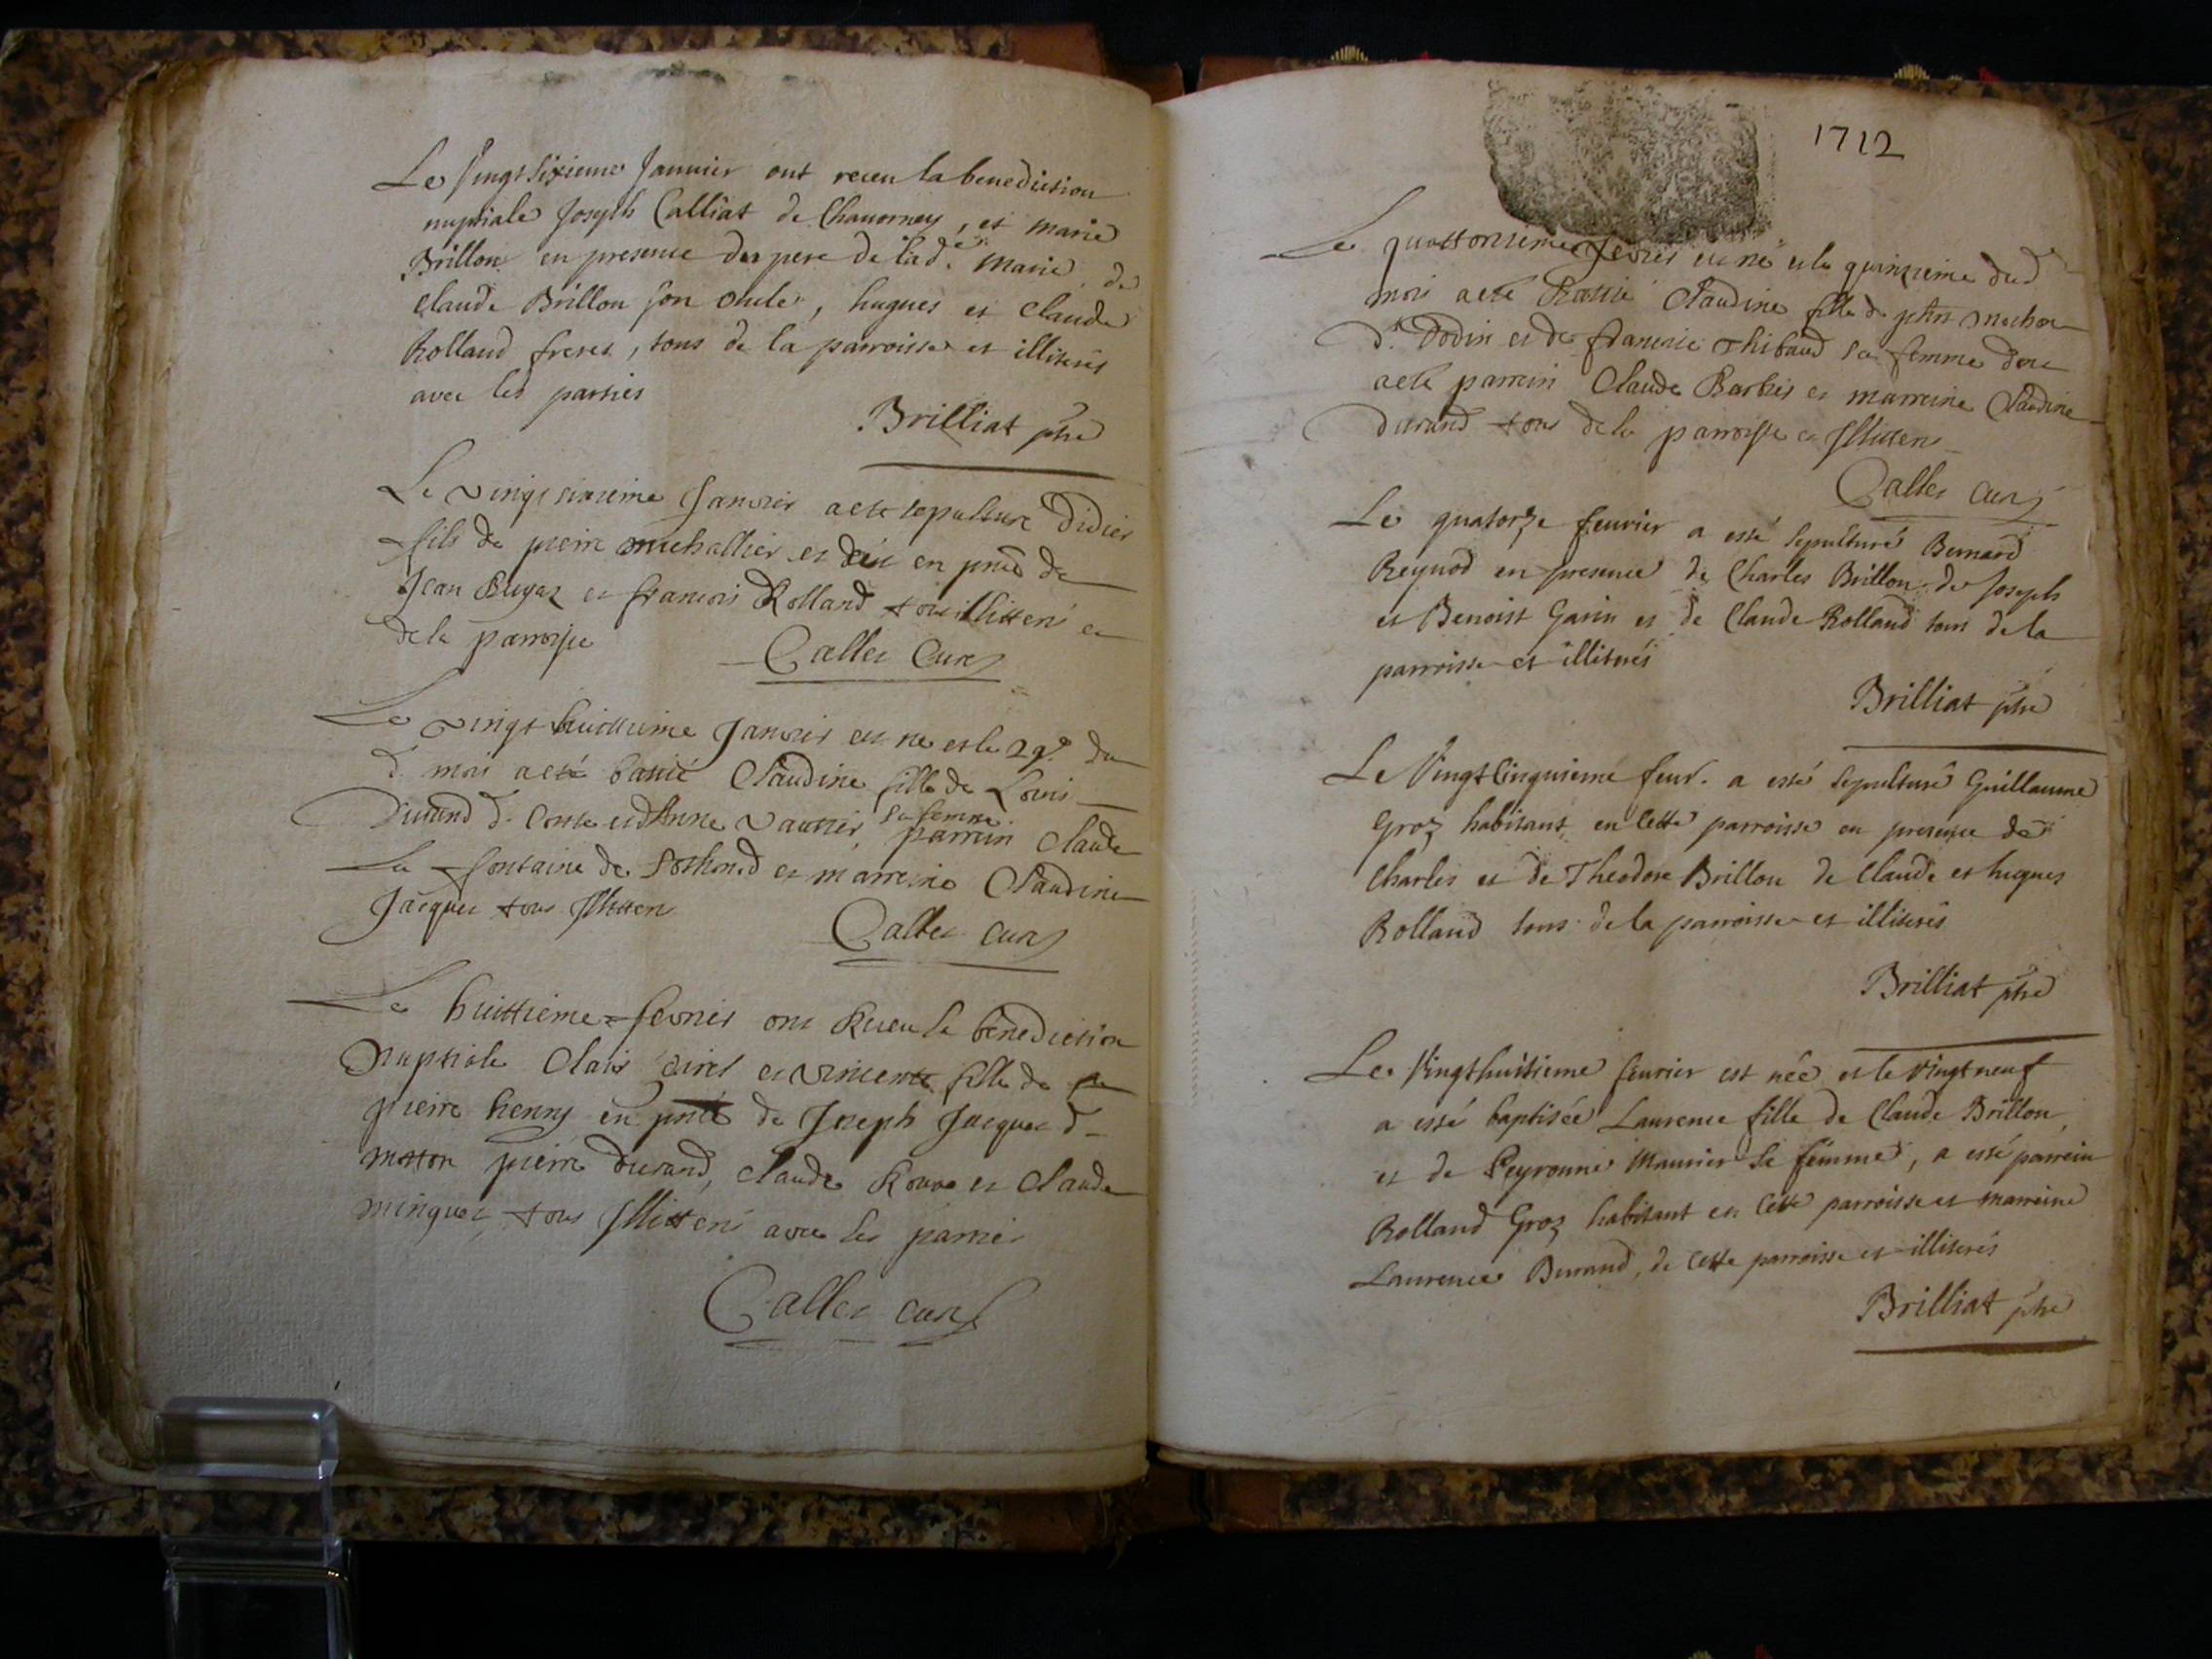 Le vingt sixieme Janvier ont receu la benediction
nuptiale Joseph Calliat de Chavorney, et marie
Brillon en presence du pere de lad.e marie, de
claude Brillon son oncle, hugues et Claude
Rolland freres, tous de la parroisse et illiterés
avec les parties
Brilliat ptre
Le vingt sixieme Janvier a este sepulture Didier
fils de pierre michallier et en pnce de
Jean et francois Rolland tous illitterés et
de la parroisse
Calles Curé
Le vingt huittieme Janvier est ne et le 29e du
d. mois a esté Claudine fille de Louis
Durand d. et d'Anne sa femme parrain Claude
La fontaine de et marreine Claudine
Jacquet tous Illitterés
Calles curé
Le huittieme fevrier ont Receu la benediction
Nuptiale et vincente fille de
pierre henry en pnce de Joseph Jacquet d
pierre durand, claude et Claude
minguet tous Illitterés avec les parties
Calles curé
1712
Le quattorzieme fevrier est né et le quinzieme dud
mois a esté Claudine fille de
Dodin et de francoise Thibaud sa femme
a esté parrein Claude Barbier et marreine Claudine
Durand tous de la parroisse et Illitterés
Calles curé
Le quatorze feuvrier a esté sepulturé Bernard
Reynod en presence de Charles Brillon de Joseph
et Benoist Garin et de Claude Rolland tous de la
parroisse et illiterés
Brilliat ptre
Le Vingt cinquieme feuv. a esté sepulturé Guillaume
Groz habitant en cette parroisse en presence de
Charles et de Theodore Brillon de Claude et hugues
Rolland tous de la parroisse et illiterés
Brilliat ptre
Le Vingthuitieme feuvrier est née et le vingt neuf
a esté baptisée Laurence fille de Claude Brillon,
et de Peyronne Maunier sa femme, a esté parrein
Rolland Groz habitant en cette parroisse et marreine
Laurence Durand, de cette parroisse et illiterés
Brilliat ptre